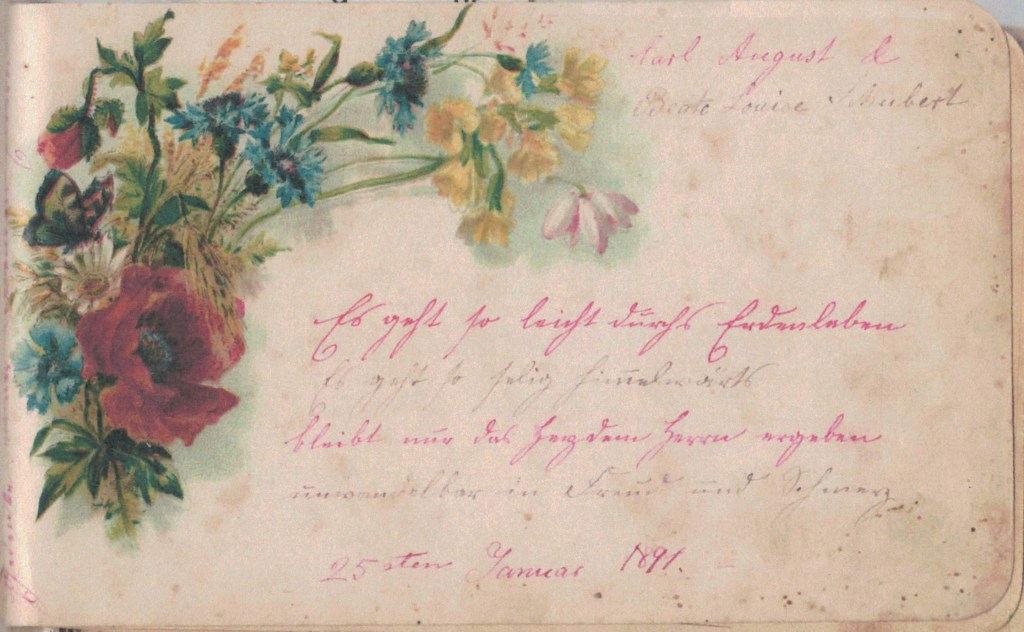 Carl August &
Beate Louise Schubert
Es geht so leicht durchs Erdenleben
Es geht so selig himmelwärts
bleibt nur das Herz dem Herrn ergeben
unwandelbar in Freud und Schmerz.
25sten Januar 1891.